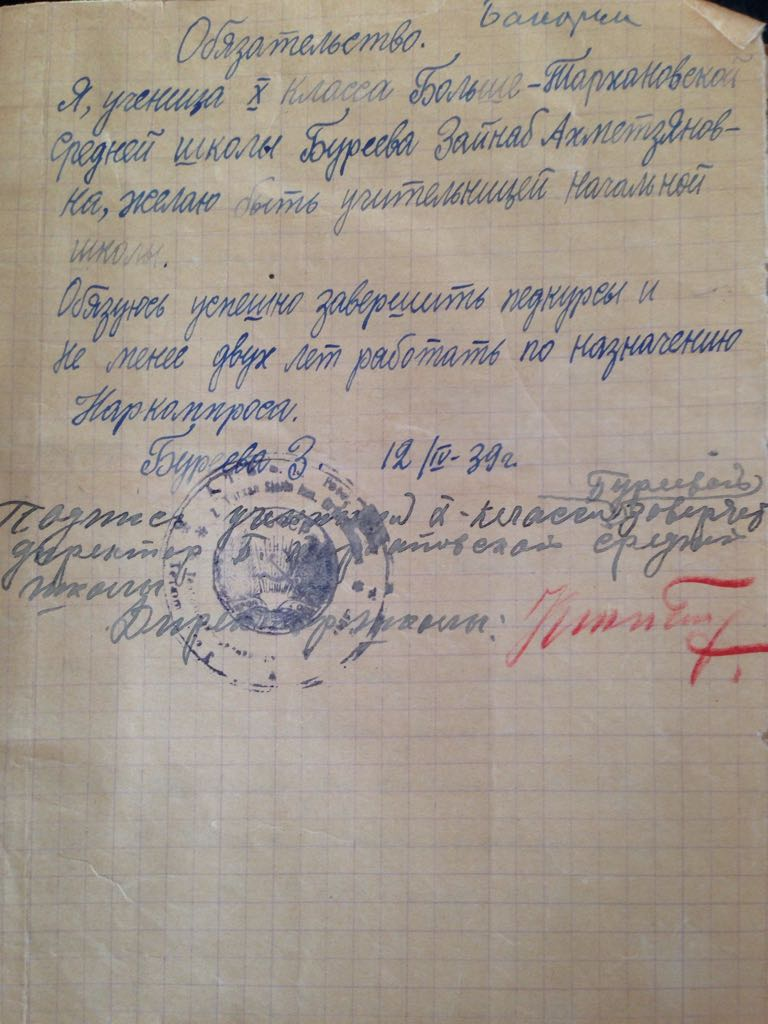 Обязательство.
Я, ученица X класса Больше-Тархановской
средней школы Буреева Зайнаб Ахметзянов-
на, желаю быть учительницей начальной
школы.
Обязуюсь успешно завершить педкурсы и
не менее двух лет работать по назначению
Наркомпроса.
Буреева З. 12/IV-39г.
Буреевой
Подпись X-класса доверяет
директор Б средней
школы
Директор школы: